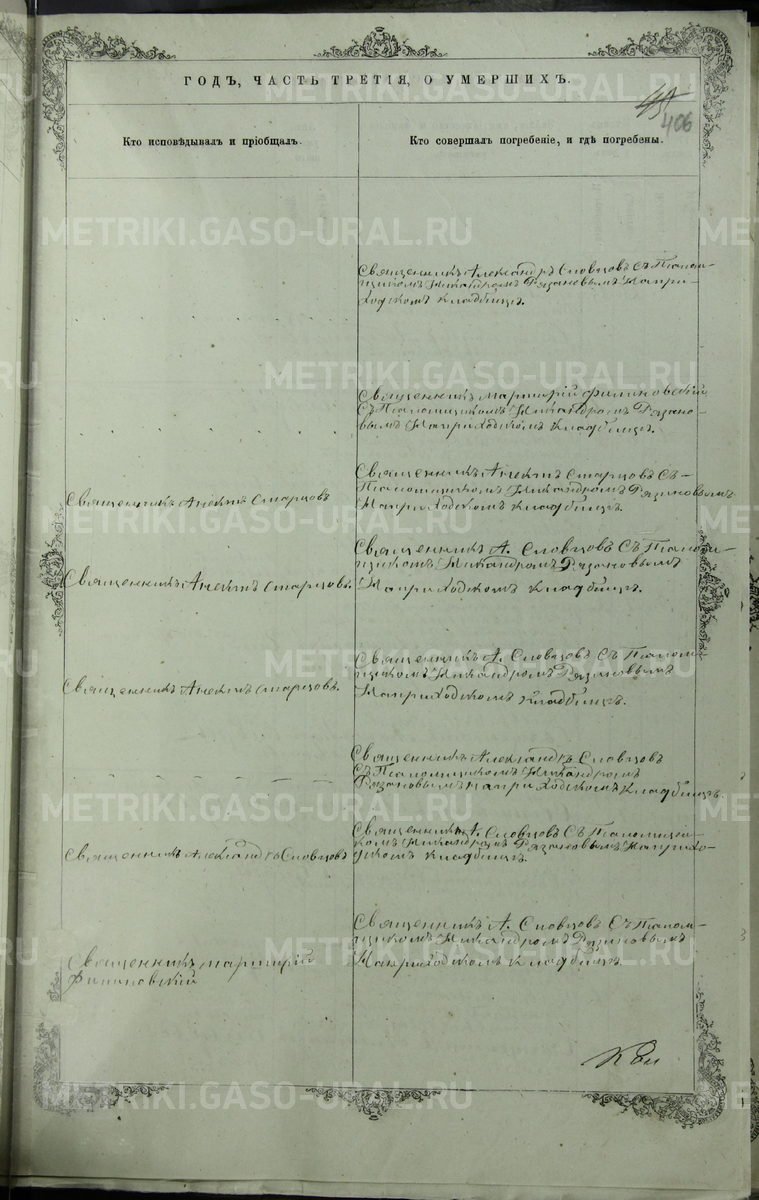 ГОДЪ, ЧАСТЬ ТРЕТІЯ, О УМЕРШИХЪ.
406
Кто исповѣдывалъ и пріобщалъ.
Кто совершалъ погребеніе, и гдѣ погребены.
Священникъ Александръ Словцовъ съ Псалом-
щикомъ Никандромъ Рязановымъ на при-
ходскомъ кладбищѣ.
Священникъ Мартирій Филиновскій
съ Псаломщикомъ Никандромъ Рязано-
вымъ на приходскомъ кладбищѣ.
Священникъ Алексій Старцовъ
Священникъ Алексій Старцовъ съ
Псаломщикомъ Никандромъ Рязановымъ
на приходскомъ кладбищѣ.
Священникъ Алексій Старцовъ.
Священникъ А. Словцовъ съ Псалом-
щикомъ Никандромъ Рязановымъ
на приходскомъ кладбищѣ.
Священникъ Алексій Старцовъ.
Священникъ А. Словцовъ съ Псалом-
щикомъ Никандромъ Рязановымъ
на приходскомъ кладбищѣ.
Священникъ Александръ Словцовъ
съ Псаломщикомъ Никандромъ
Рязановымъ на приходскомъ кладбищѣ.
Священникъ Александръ Словцовъ
Священникъ А. Словцовъ съ Псаломщи-
комъ Никандромъ Рязановымъ на прихо-
дскомъ кладбищѣ.
Священникъ Мартирій
Филиновскій
Священникъ А. Словцовъ съ Псалом-
щикомъ Никандромъ Рязановымъ
на приходскомъ кладбищѣ.
METRIKI.GASO-URAL.RU